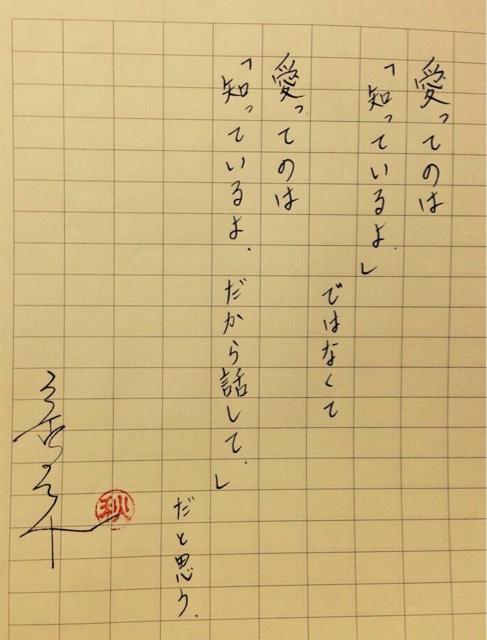 愛ってのは
「知っているよ.」
ではなくて
愛ってのは
「知っているよ.だから話して.」
だと思う.